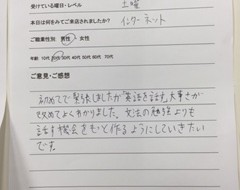 受けている曜日・レベル
土曜
本日は何をみてご来店されましたか?
インターネット
ご職業性別 男性 ・ 女性
年齢 10代 20代 30代 40代 50代 60代 70代
ご意見・ご感想
初めてで緊張しましたが「英語を話す」大事さが
改めてよくわかりました。文法の勉強よりも
話す機会をもっと作るようにしていきたい
です。